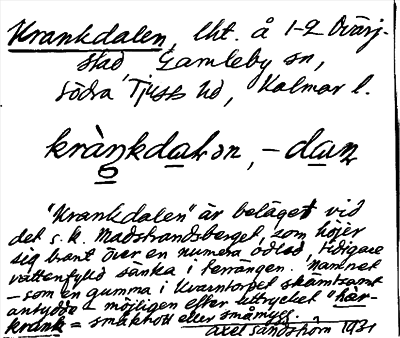 Krankdalen, lht. å 1-2 Överj-
stad Gamleby sn,
Södra Tjust hd, Kalmar l.
kràŋkdaLən, -dan
"Krankdalen" är beläget vid
det s.k. Madstrandsberget, som höjer
sig brant över en numera odlad, tidigare
vattenfylld sänka i terrängen. Namnet
- som en gumma i Kvarntorpet skämtsamt
antydde - möjligen efter uttrycket "här-
krank = småknott eller småmygg.
Axel Sandström 1931